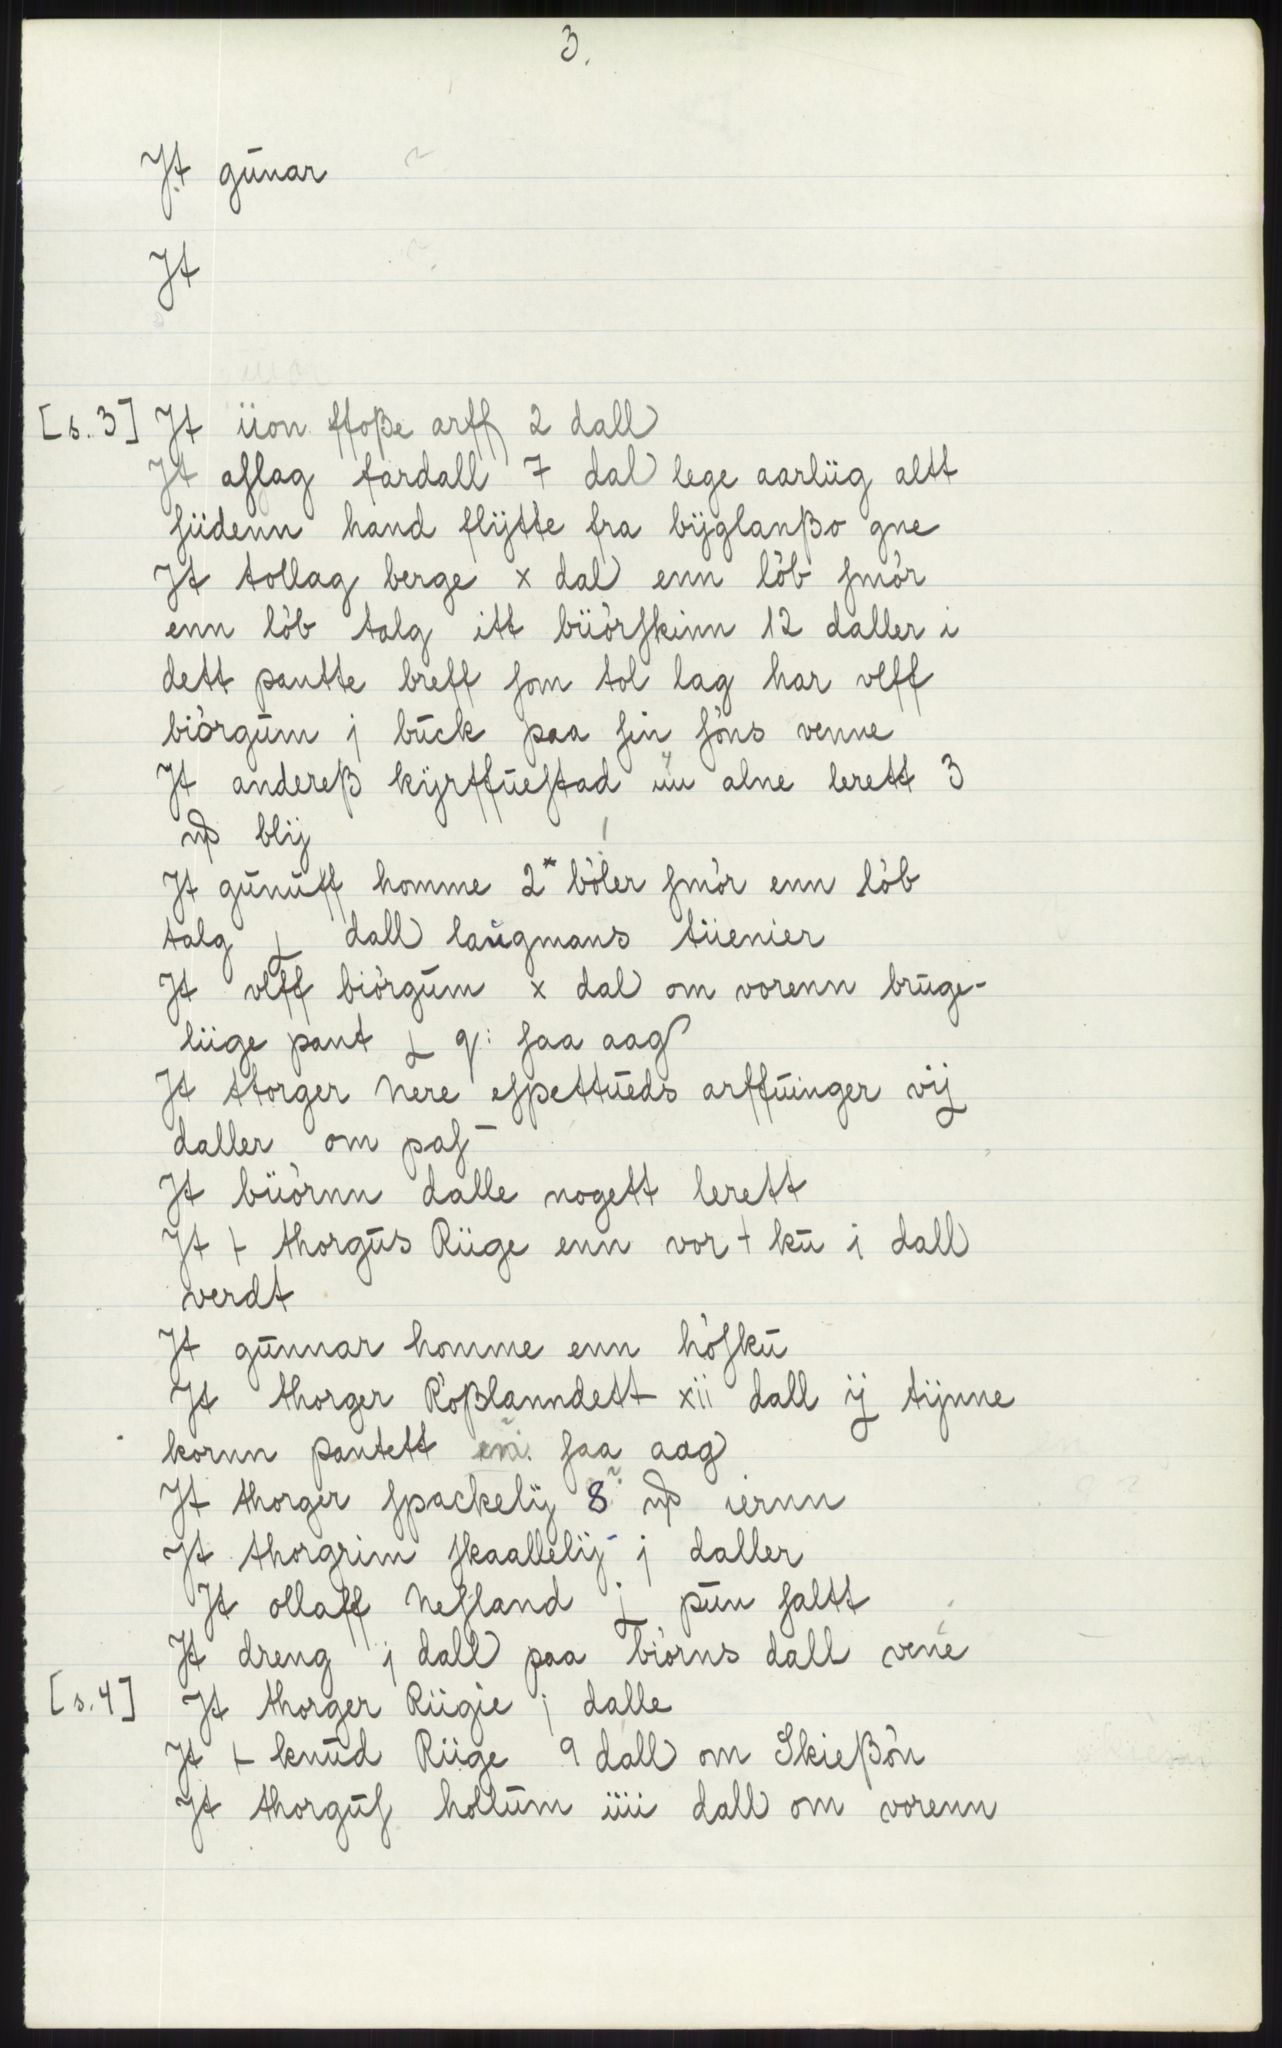 3.
Jt gūnar
Jt
[s. 3] Jt üon ffoße arff 2 dall
Jt aſlag fardall 7 dal lege aarlüg altt
ſüdenn hand flÿtte fra bÿglanßo gne
Jt tollag berge x dal enn lòb ſmòr
enn lòb talg itt büòrſkinn 12 daller i
dett pantte breff ſom tol lag har vlff
biòrgūm j būck paa ſin ſòns venne
Jt andereß kÿrffūeſtad alne lerett 3
blij
Jt gūnūff homme 2* bòler ſmòr enn lòb
talg dall laūgmans tüenier
Jt vlff biòrgūm x dal om vorenn brūge-
lüge pant q: ſaa aag
Jt ttorger Nere eſpettūeds arffūinger vij
daller om paſ
Jt büòrnn dalle nogett lerett
Jt + thorgūs Rüge enn vor + kū j dall
verdt
Jt gūnnar homme enn hòſkū
Jt thorger Ròßlanndett xii dall ij tÿnne
kornn pantett ſaa aag
Jt thorger ſpackelÿ 8 iernn
Jt thorgrim ſkaallelij j daller
Jt ollaff Neſland pūn ſaltt
Jt dreng j dall paa biòrns dall vene
[s. 4] Jt thorger Rügie j dalle
Jt + knūd Rüge 9 dall om Skießòn
Jt thorgūſ hollūm iiii dall om vorenn